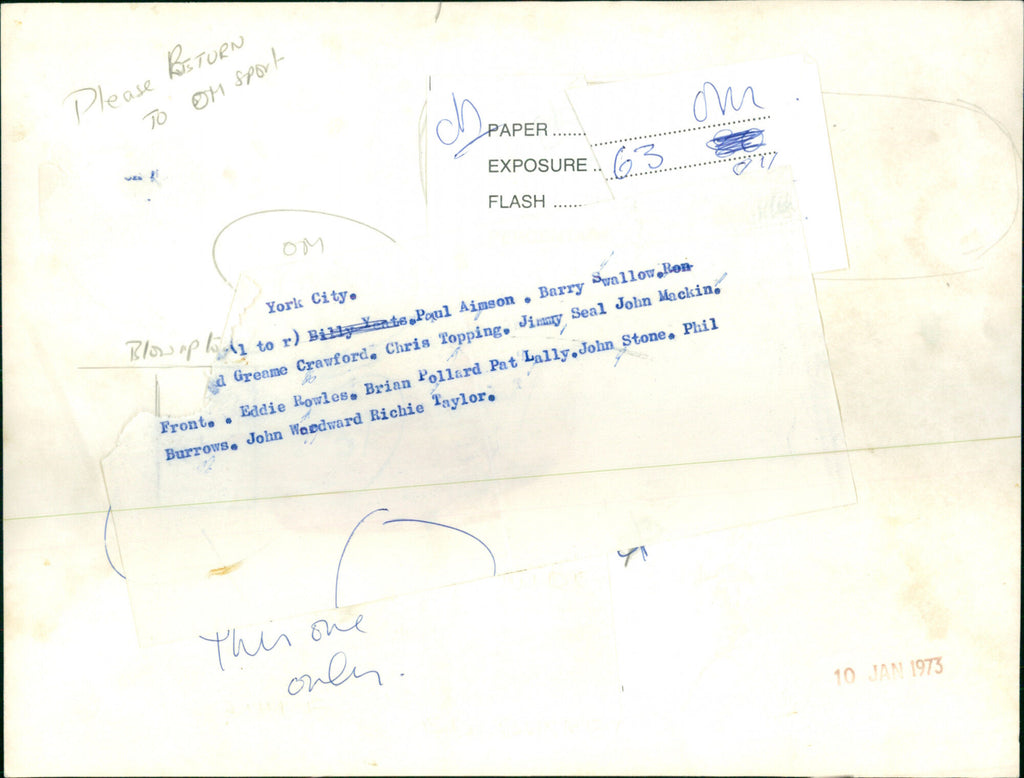 Please RETURN
TO OM SPORT
PAPER ...... OM
EXPOSURE .. 63
FLASH ......
OM
York City.
(l to r) Billy Yeats.Paul Aimson . Barry Swallow.Ron
d Greame Crawford. Chris Topping. Jimmy Seal John Mackin.
Blow up to
Front. . Eddie Rowles. Brian Pollard Pat Lally.John Stone. Phil
Burrows. John Woodward Richie Taylor.
This one
only.
10 JAN 1973